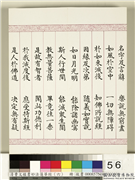 名字及言辭　樂說無窮盡
如風於空中　一切無障礙
於如來滅後　知佛所說經
因緣及次第　隨義如實說
如日月光明　能除諸幽冥
斯人行世間　能滅眾生闇
教無量菩薩　畢竟住一乘
是故有智者　聞此功德利
於我滅度後　應受持斯經
是人於佛道　決定無有疑
56